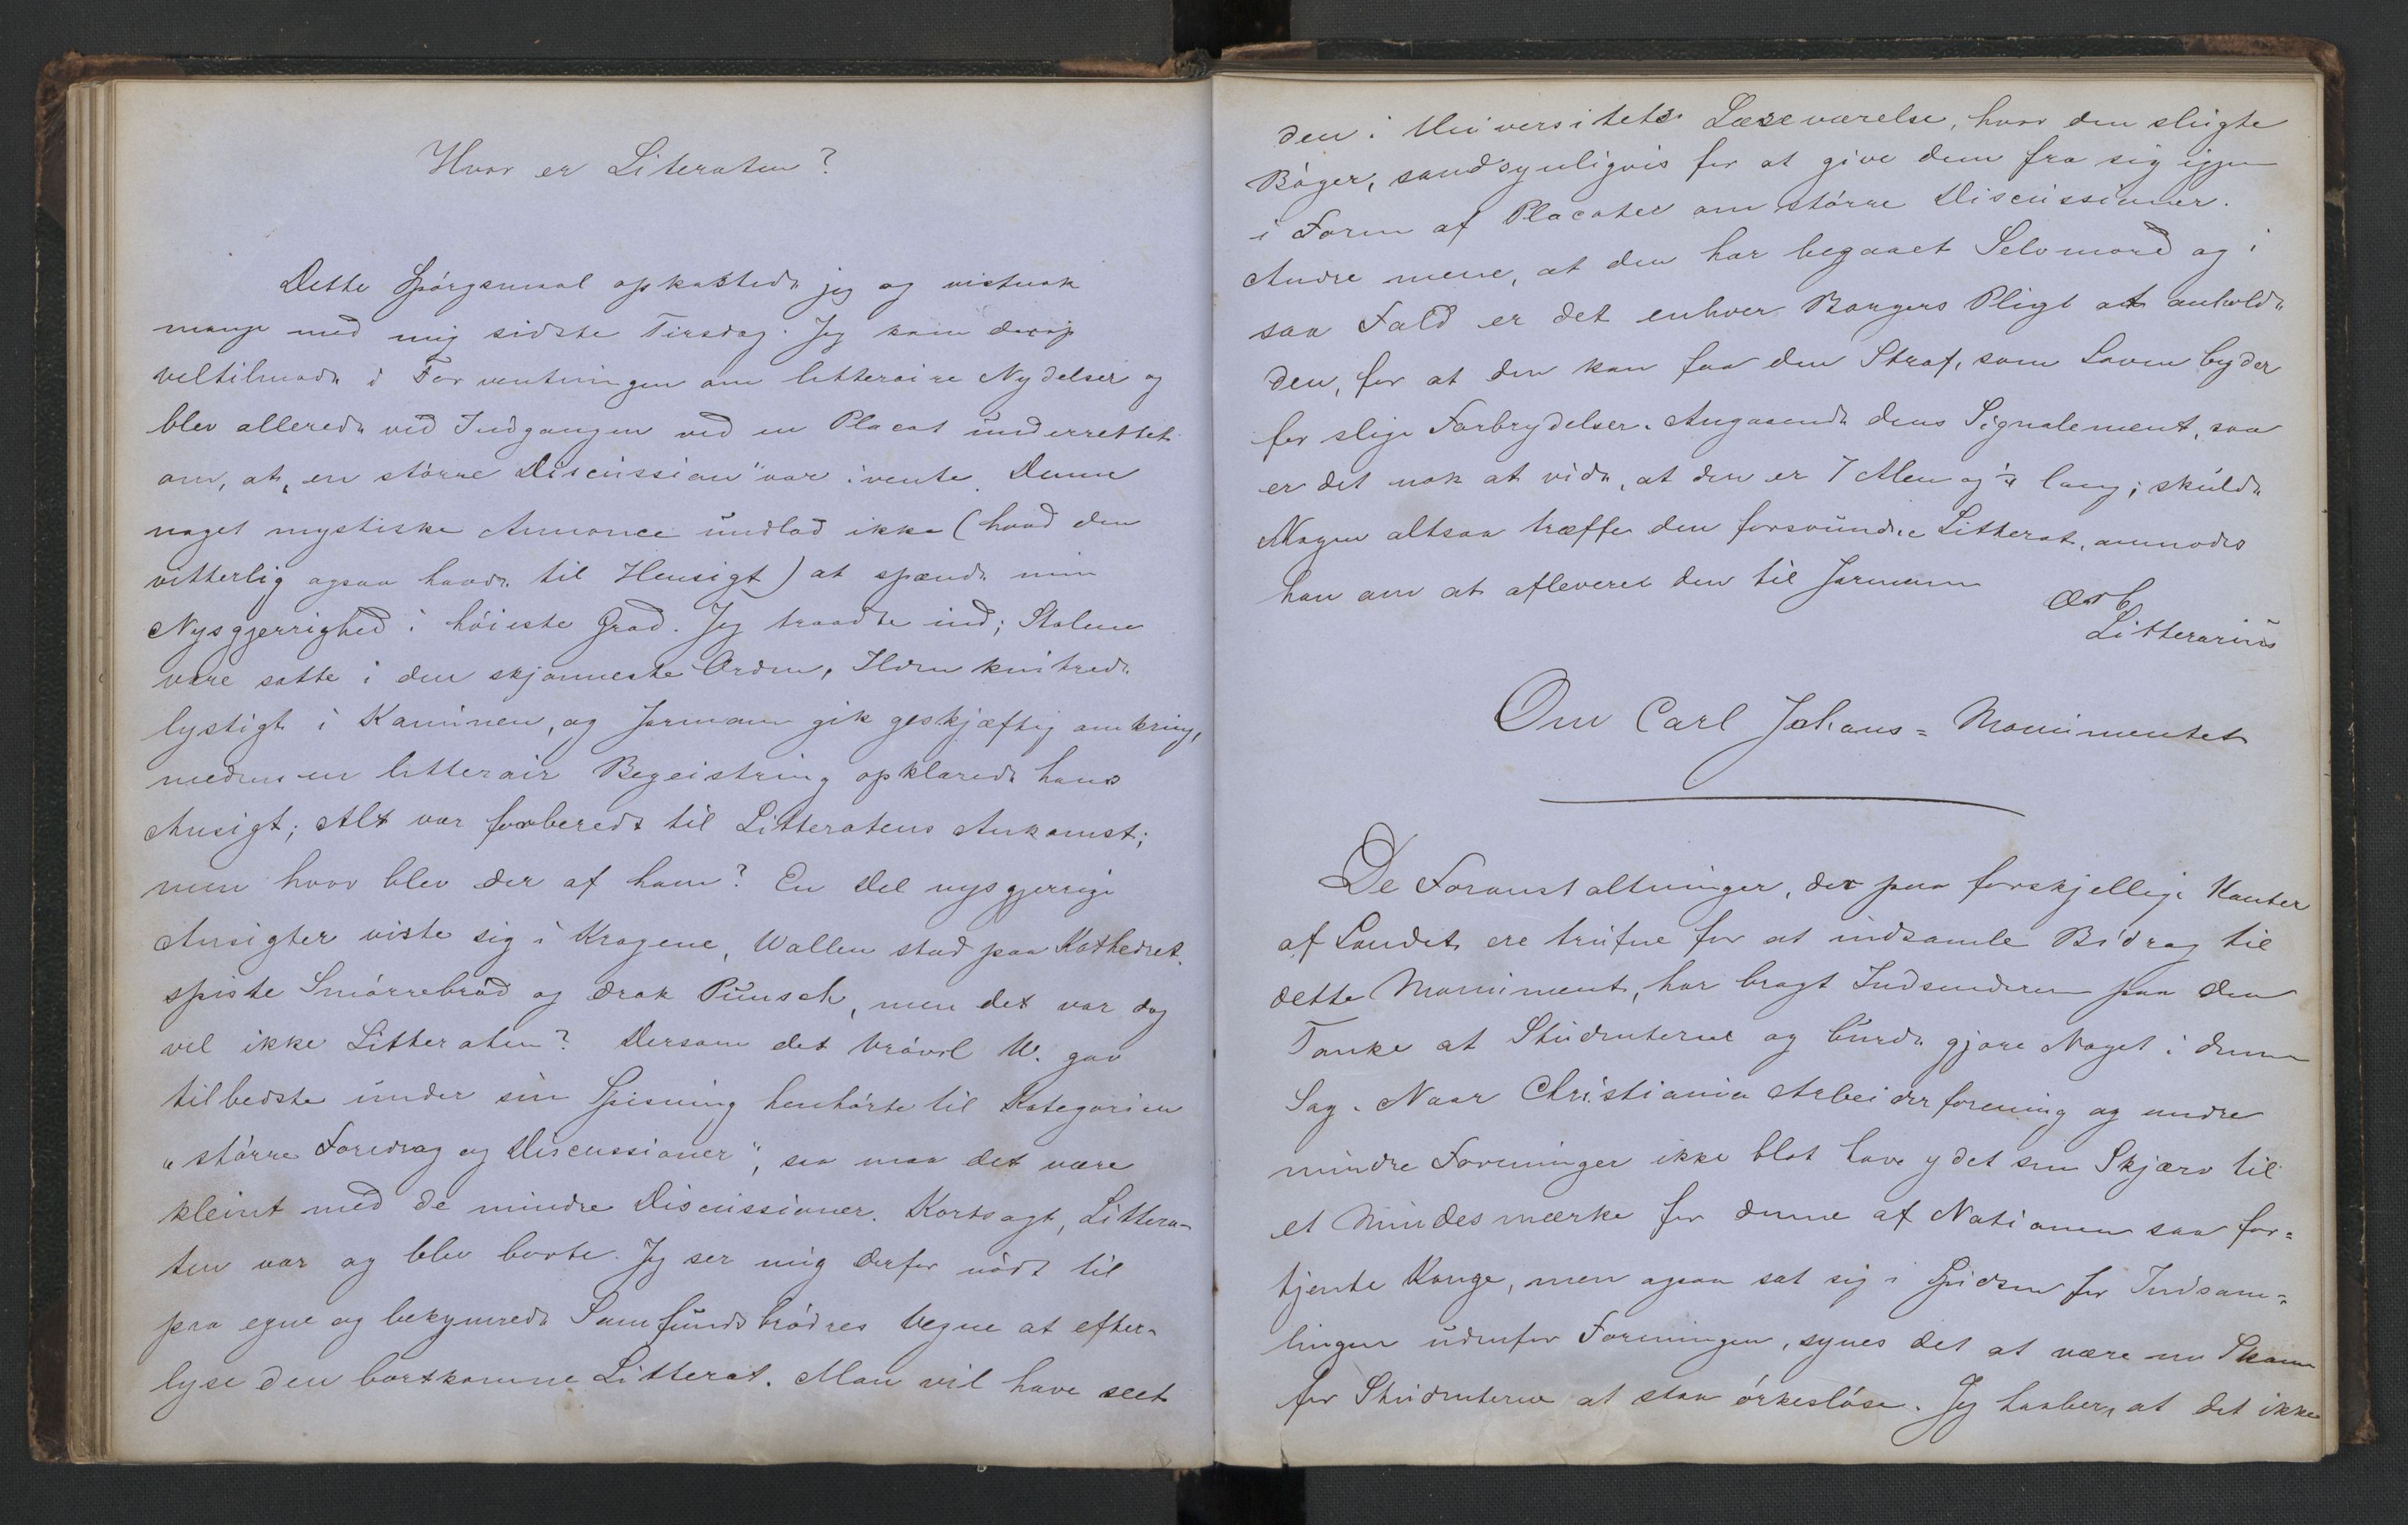 Hvor er Literaten?
Dette Spörgsmaal opkastede jeg og vistnok
mange med mig sidste Tirsdag. Jeg kom derop
veltilmode i Forventningen om litteraire Nydelser og
blev allerede ved Indgangen ved en Placat underrettet
om, at „en större Discussion" var ivente. Denne
noget mystiske Annonce undlod ikke (hvad den
vitterlig ogsaa havde til Hensigt) at spænde min
Nysgjerrighed i höieste Grad. Jeg traadte ind; Stolene
vare satte i den skjönneste Orden, Ilden knitrede
lystigt i Kaminen, og Jarmann gik geskjæftig omkring,
medens en litterair Begeistring opklarede hans
Ansigt; Alt var forberedt til Litteratens Ankomst;
men hvor blev der af ham? En Del nysgjerrige
Ansigter viste sig i Krogene, Wallem stod paa Kathedret,
spiste Smörrebröd og drak Punsch, men det var dog
vel ikke Litteraten? Dersom det Vrövl W. gav
tilbedste under sin Spisning henhörte til Kategorien
„större Foredrag og Discussioner", saa maa det være
kleint med de mindre Discussioner. Kortsagt, Littera-
ten var og blev borte. Jeg ser mig derfor nödt til
paa egne og bekymrede Samfundsbrödres Vegne at efter-
lyse den bortkomne Litterat. Man vil have seet
den i Universitets Læseværelse, hvor den slugte
Böger, sandsynligvis for at give dem fra sig igjen
i Form af Placater om större Discussioner.
Andre mene, at den har begaaet Selvmord og i
saa Fald er det enhver Borgers Pligt at anholde
den, for at den kan faa den Straf, som Loven byder
for slige Forbrydelser. Angaaende dens Signalement, saa
er det nok at vide, at den er 7 Alen og lang; skulde
Nogen altsaa træffe den forsvundne Litterat, anmodes
han om at afleveret den til Jarmann
Litterarius
Om Carl Johans = Monumentet
De Foranstaltninger, der paa forskjellige Kanter
af Landet ere trufne for at indsamle Bidrag til
dette Monument, har bragt Indsenderen paa den
Tanke at Studenterne og burde gjøre Noget i denne
Sag. Naar Christiania Arbeiderforening og andre
mindre Foreninger ikke blot have ydet sin Skjærv til
et Mindesmærke for denne af Nationen saa for=
tjente Konge, men ogsaa sat sig i Spidsen for Indsam=
lingen udenfor Foreningen, synes det at være en Skam
for Studenterne at staa örkeslöse. Jeg haaber, at det ikke